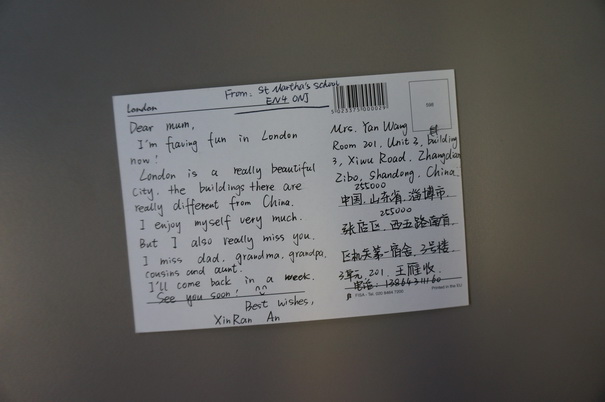 London
From: St Martha's School
EN4 0NJ
5023375000029
Dear mum,
I'm having fun in London
now!
London is a really beautiful
city. the buildings there are
really different from China.
I enjoy myself very much.
But I also really miss you.
I miss dad. grandma. grandpa.
cousins and aunt.
I'll come back in a week.
See you soon!
Best wishes,
XinRan An
Mrs. Yan Wang
Room 201. Unit 3, building
3, Xiwu Road. Zhangdian
Zibo, Shandong. China
255000
中国.山东省.淄博市.
255000
张店区.西五路西首.
区机关第一宿舍.3号楼
3单元.201.王雁收.
电话:13864311160
Printed in the EU